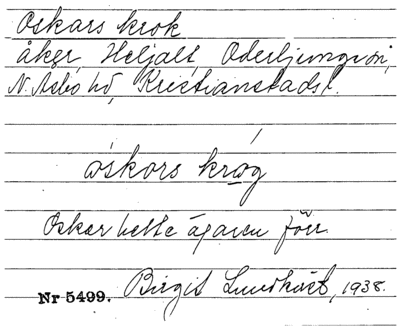 Oskars krok
åker, Heljalt, Oderljunga sn,
N. Åsbo hd, Kristianstads l.
óskors krog
Oskar hette ägaren förr.
Nr 5499. Birgit Lundkvist, 1938.